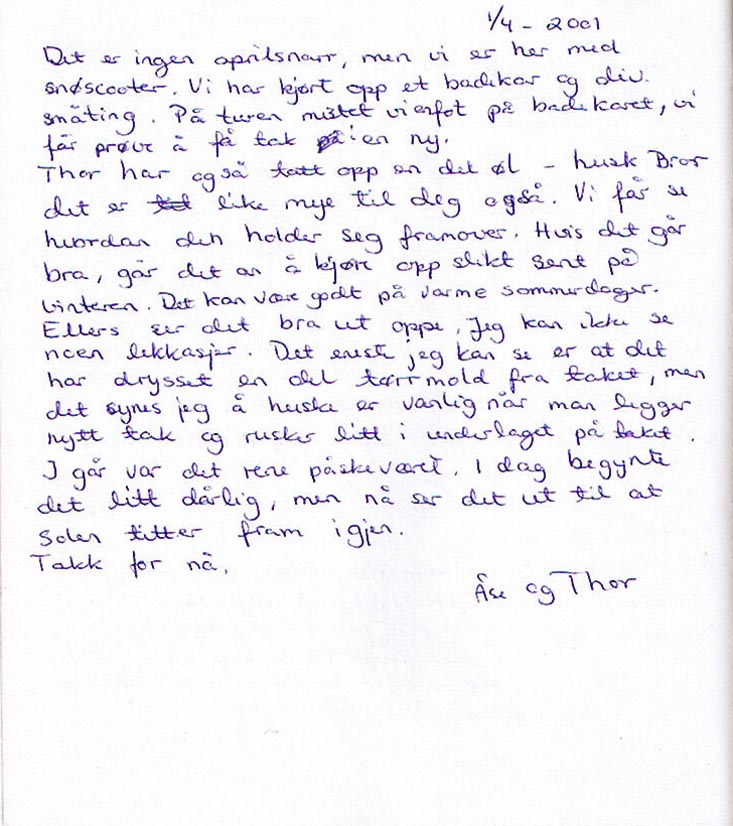 1/4 - 2001
Det er ingen aprilsnarr, men vi er her med
snøscooter. Vi har kjørt opp et badekar og div.
småting. På turen mistet vi en fot på badekaret, vi
får prøve å få tak i en ny.
Thor har også tatt opp en del øl - husk Bror
det er like mye til deg også. Vi får se
hvordan den holder seg framover. Hvis det går
bra, går det an å kjøre opp slikt sent på
vinteren. Det kan være godt på varme sommerdager.
Ellers ser det bra ut oppe, Jeg kan ikke se
noen lekkasjer. Det eneste jeg kan se er at det
har drysset en del tørrmold fra taket, men
det synes jeg å huske er vanlig når man legger
nytt tak og rusker litt i underlaget på taket.
I går var det rene påskeværet. I dag begynte
det litt dårlig, men nå ser det ut til at
Solen titter fram igjen.
Takk for nå.
Åse og Thor